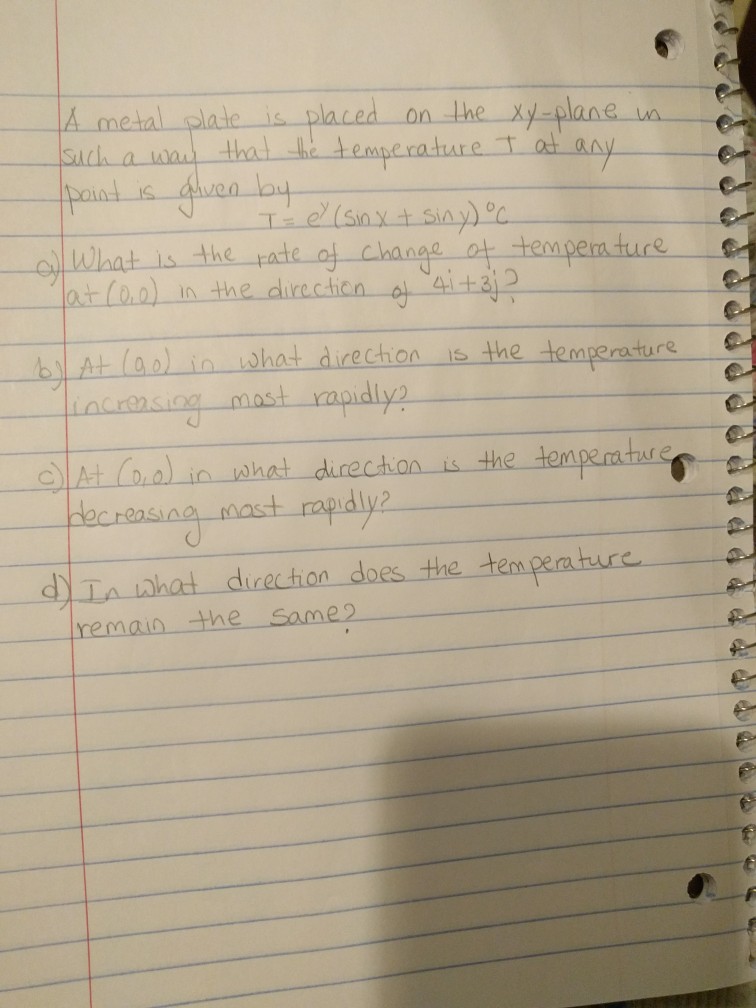 A metal plate is placed on the xy-plane in
such a way that the temperature T at any
point is given by
T = e^y (sin x + sin y) °C
a) What is the rate of change of temperature
at (0,0) in the direction of 4i+3j?
b) At (0,0) in what direction is the temperature
increasing most rapidly?
c) At (0,0) in what direction is the temperature
decreasing most rapidly?
d) In what direction does the temperature
remain the same?